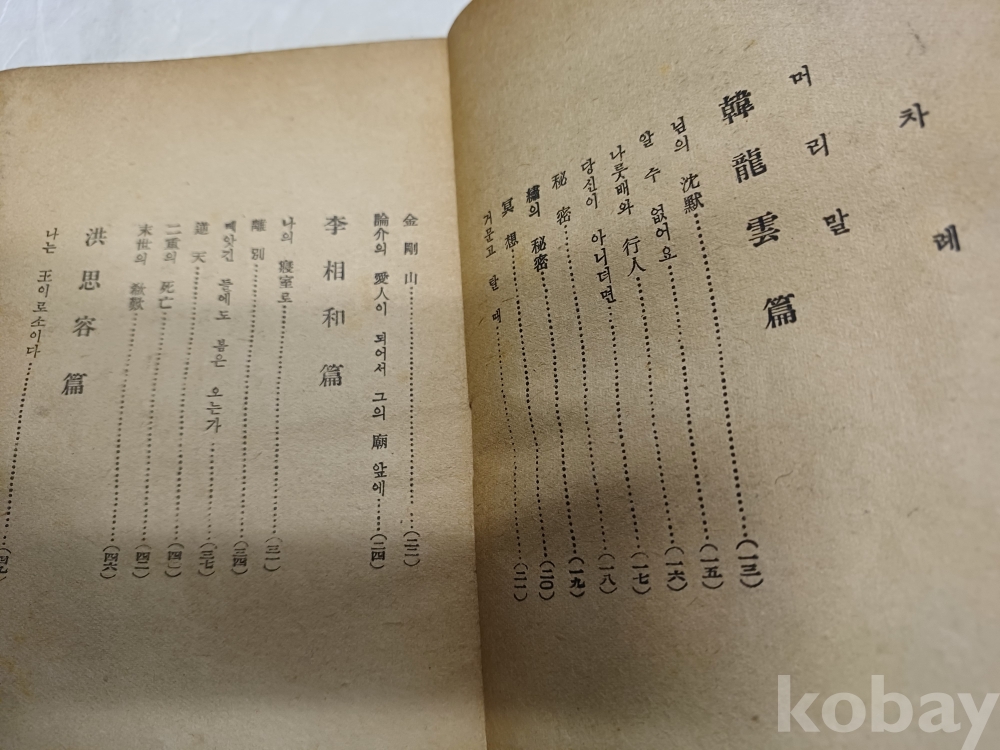 차 례
머 리 말
韓 龍 雲 篇
님의 沈默……(一三)
알 수 없어요……(一五)
나룻배와 行人……(一六)
당신이 아니더면……(一七)
秘 密……(一八)
繡의 秘密……(一九)
冥 想……(二〇)
거문고 탈 때……(二一)
金 剛 山……(二二)
論介의 愛人이 되어서 그의 廟 앞에……(二四)
李 相 和 篇
나의 寢室로……(三一)
離 別……(三四)
빼앗긴 들에도 봄은 오는가……(三七)
逆 天……(四一)
二重의 死亡……(四二)
末世의 欷歎……(四六)
洪 思 容 篇
나는 王이로소이다……(四九)
kobay